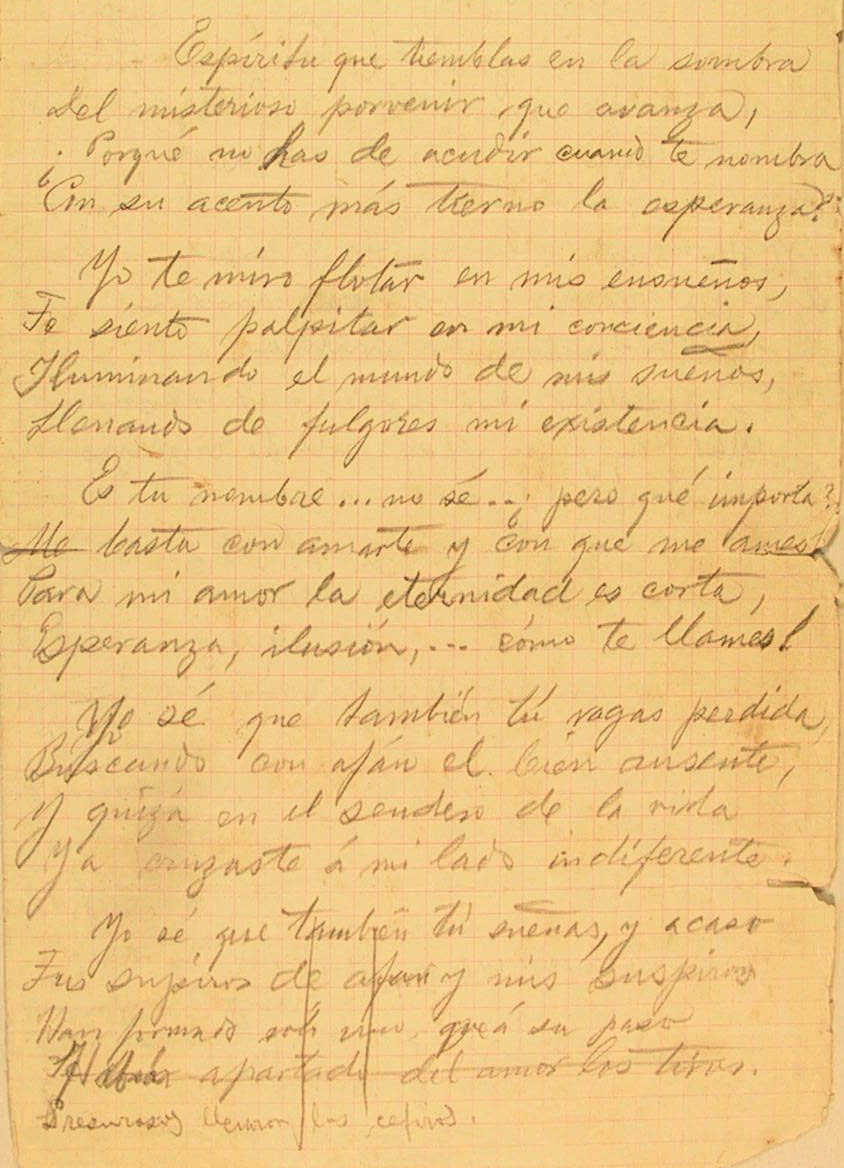 Espíritu que tiemblas en la sombra
Del misterioso porvenir que avanza,
¿Porqué no has de acudir cuando te nombra
Con su acento más tierno la esperanza?
Yo te miro flotar en mis ensueños,
Te siento palpitar en mi conciencia,
Iluminando el mundo de mis sueños,
Llenando de fulgores mi existencia.
Es tu nombre... no sé..¿ pero qué importa?
Me basta con amarte y con que me ames!
Para mi amor la eternidad es corta,
Esperanza, ilusión,... cómo te llames!
Yo sé que también tú vagas perdida,
Buscando con afán el bien ausente,
Y quizá en el sendero de la vida
Ya cruzaste á mi lado indiferente.
Yo sé que también tú sueñas, y acaso
Tus supiros de afan y mis suspiros
Han formado solo uno, que á su paso
apartado del amor los tiros.
Presurosos llevaron los cefiros.